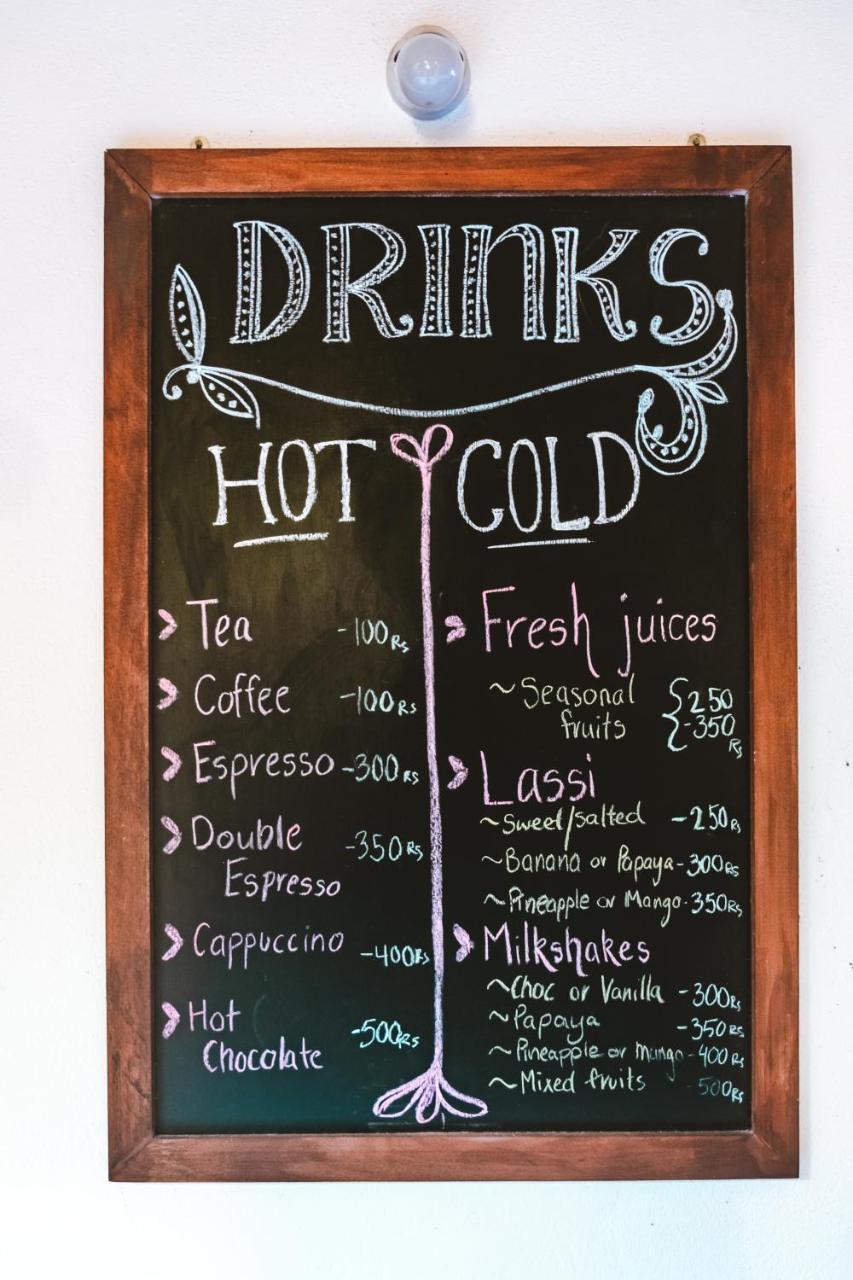 DRINKS
HOT
Tea -100Rs
Coffee -100Rs
Espresso -300Rs
Double -350Rs
Espresso
Cappuccino -400Rs
Hot
Chocolate -500Rs
COLD
Fresh juices
~Seasonal {250
fruits -350
Rs
Lassi
~Sweet/salted -250Rs
~Banana or Papaya-300Rs
~Pineapple or Mango-350Rs
Milkshakes
~Choc or Vanilla -300Rs
~Papaya -350Rs
~Pineapple or Mango-400Rs
~Mixed fruits 500Rs